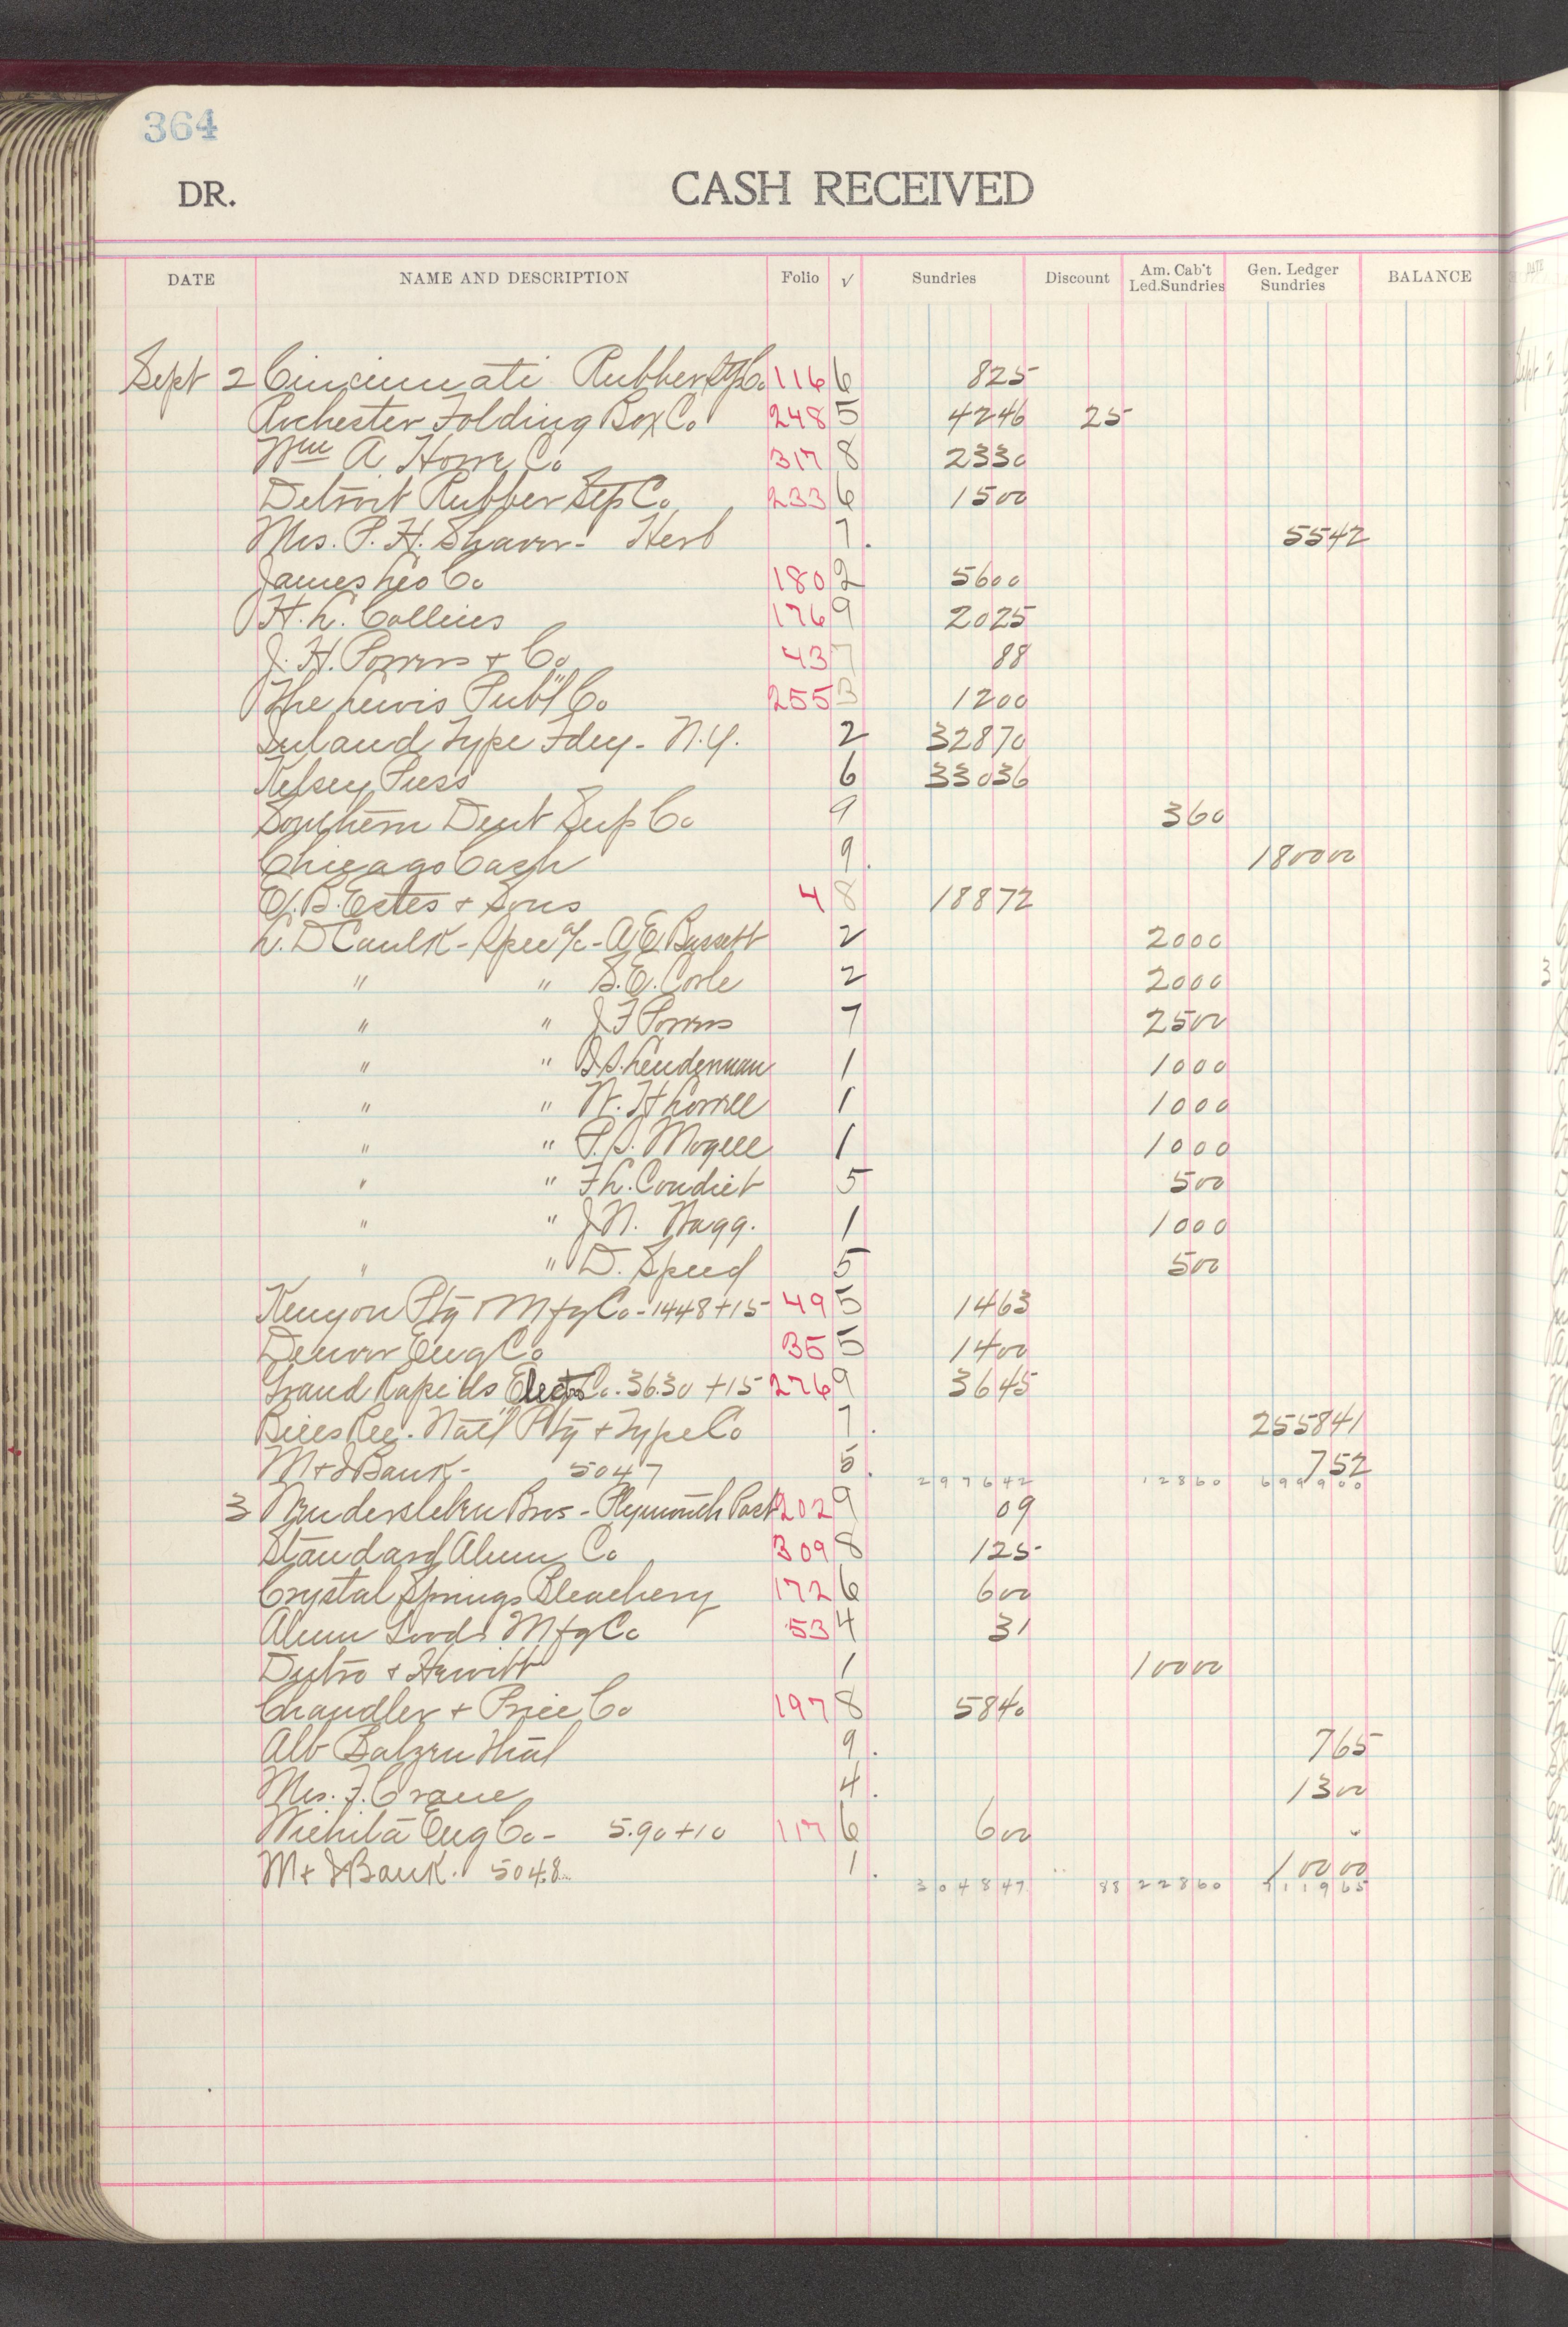 364
DR. CASH RECEIVED
DATE NAME AND DESCRIPTION Folio √ Sundries Discount Am. Cab't Led.Sundries Gen. Ledger Sundries BALANCE
Sept 2 Cincinnati Rubber Co. 116 6 825
Rochester Folding Box Co 248 5 4246 25
Wm A. Co 317 8 2330
Detroit Rubber Stp Co 233 6 1500
Mrs. P. H. Shaver - Herb 7. 5542
James Leo Co 180 2 5600
H. L. Collins 176 9 2025
J. H. Powers + Co 43 7 88
The Lewis Pub'l Co 255 3 1200
Inland Type Fdry - N.Y. 2 32870
Kelsey Press 6 33036
Southern Dent Sup Co 9 360
Chicago Cash 9. 18000
E. B. Estes + Sons 4 8 18872
L. D Caulk - Spec a/c - A E Bassett 2 2000
" " S. E. Corle 2 2000
" " J F Powers 7 2500
" " Lendenman 1 1000
" " W. H 1 1000
" " 1 1000
" " F L. Condict 5 500
" " J N. Wagg. 1 1000
" " D. Speed 5 500
Kenyon Ptg + Mfg Co - 1448 + 15 49 5 1463
Denver Eng Co 35 5 1400
Grand Rapids Electro Co. 36.30 + 15 276 9 3645
Bills Rec. Nat'l Ptg + Type Co 7. 255841
M + J Bank - 5047 5. 752
297642 12860 699900
3 Bros - Plymouth Rock 202 9 09
Standard Alum Co 309 8 125
Crystal Springs Bleachery 172 6 600
Alum Goods Mfg Co 53 4 31
+ Hewitt 1 10000
Chandler + Price Co 197 8 5840
Alb Balzenthal 9. 765
Mrs. F. Crane 4. 1300
Wichita Eng Co - 5.90 + 10 117 6 600
M + J Bank. 5048 1. 10000
304847 88 22860